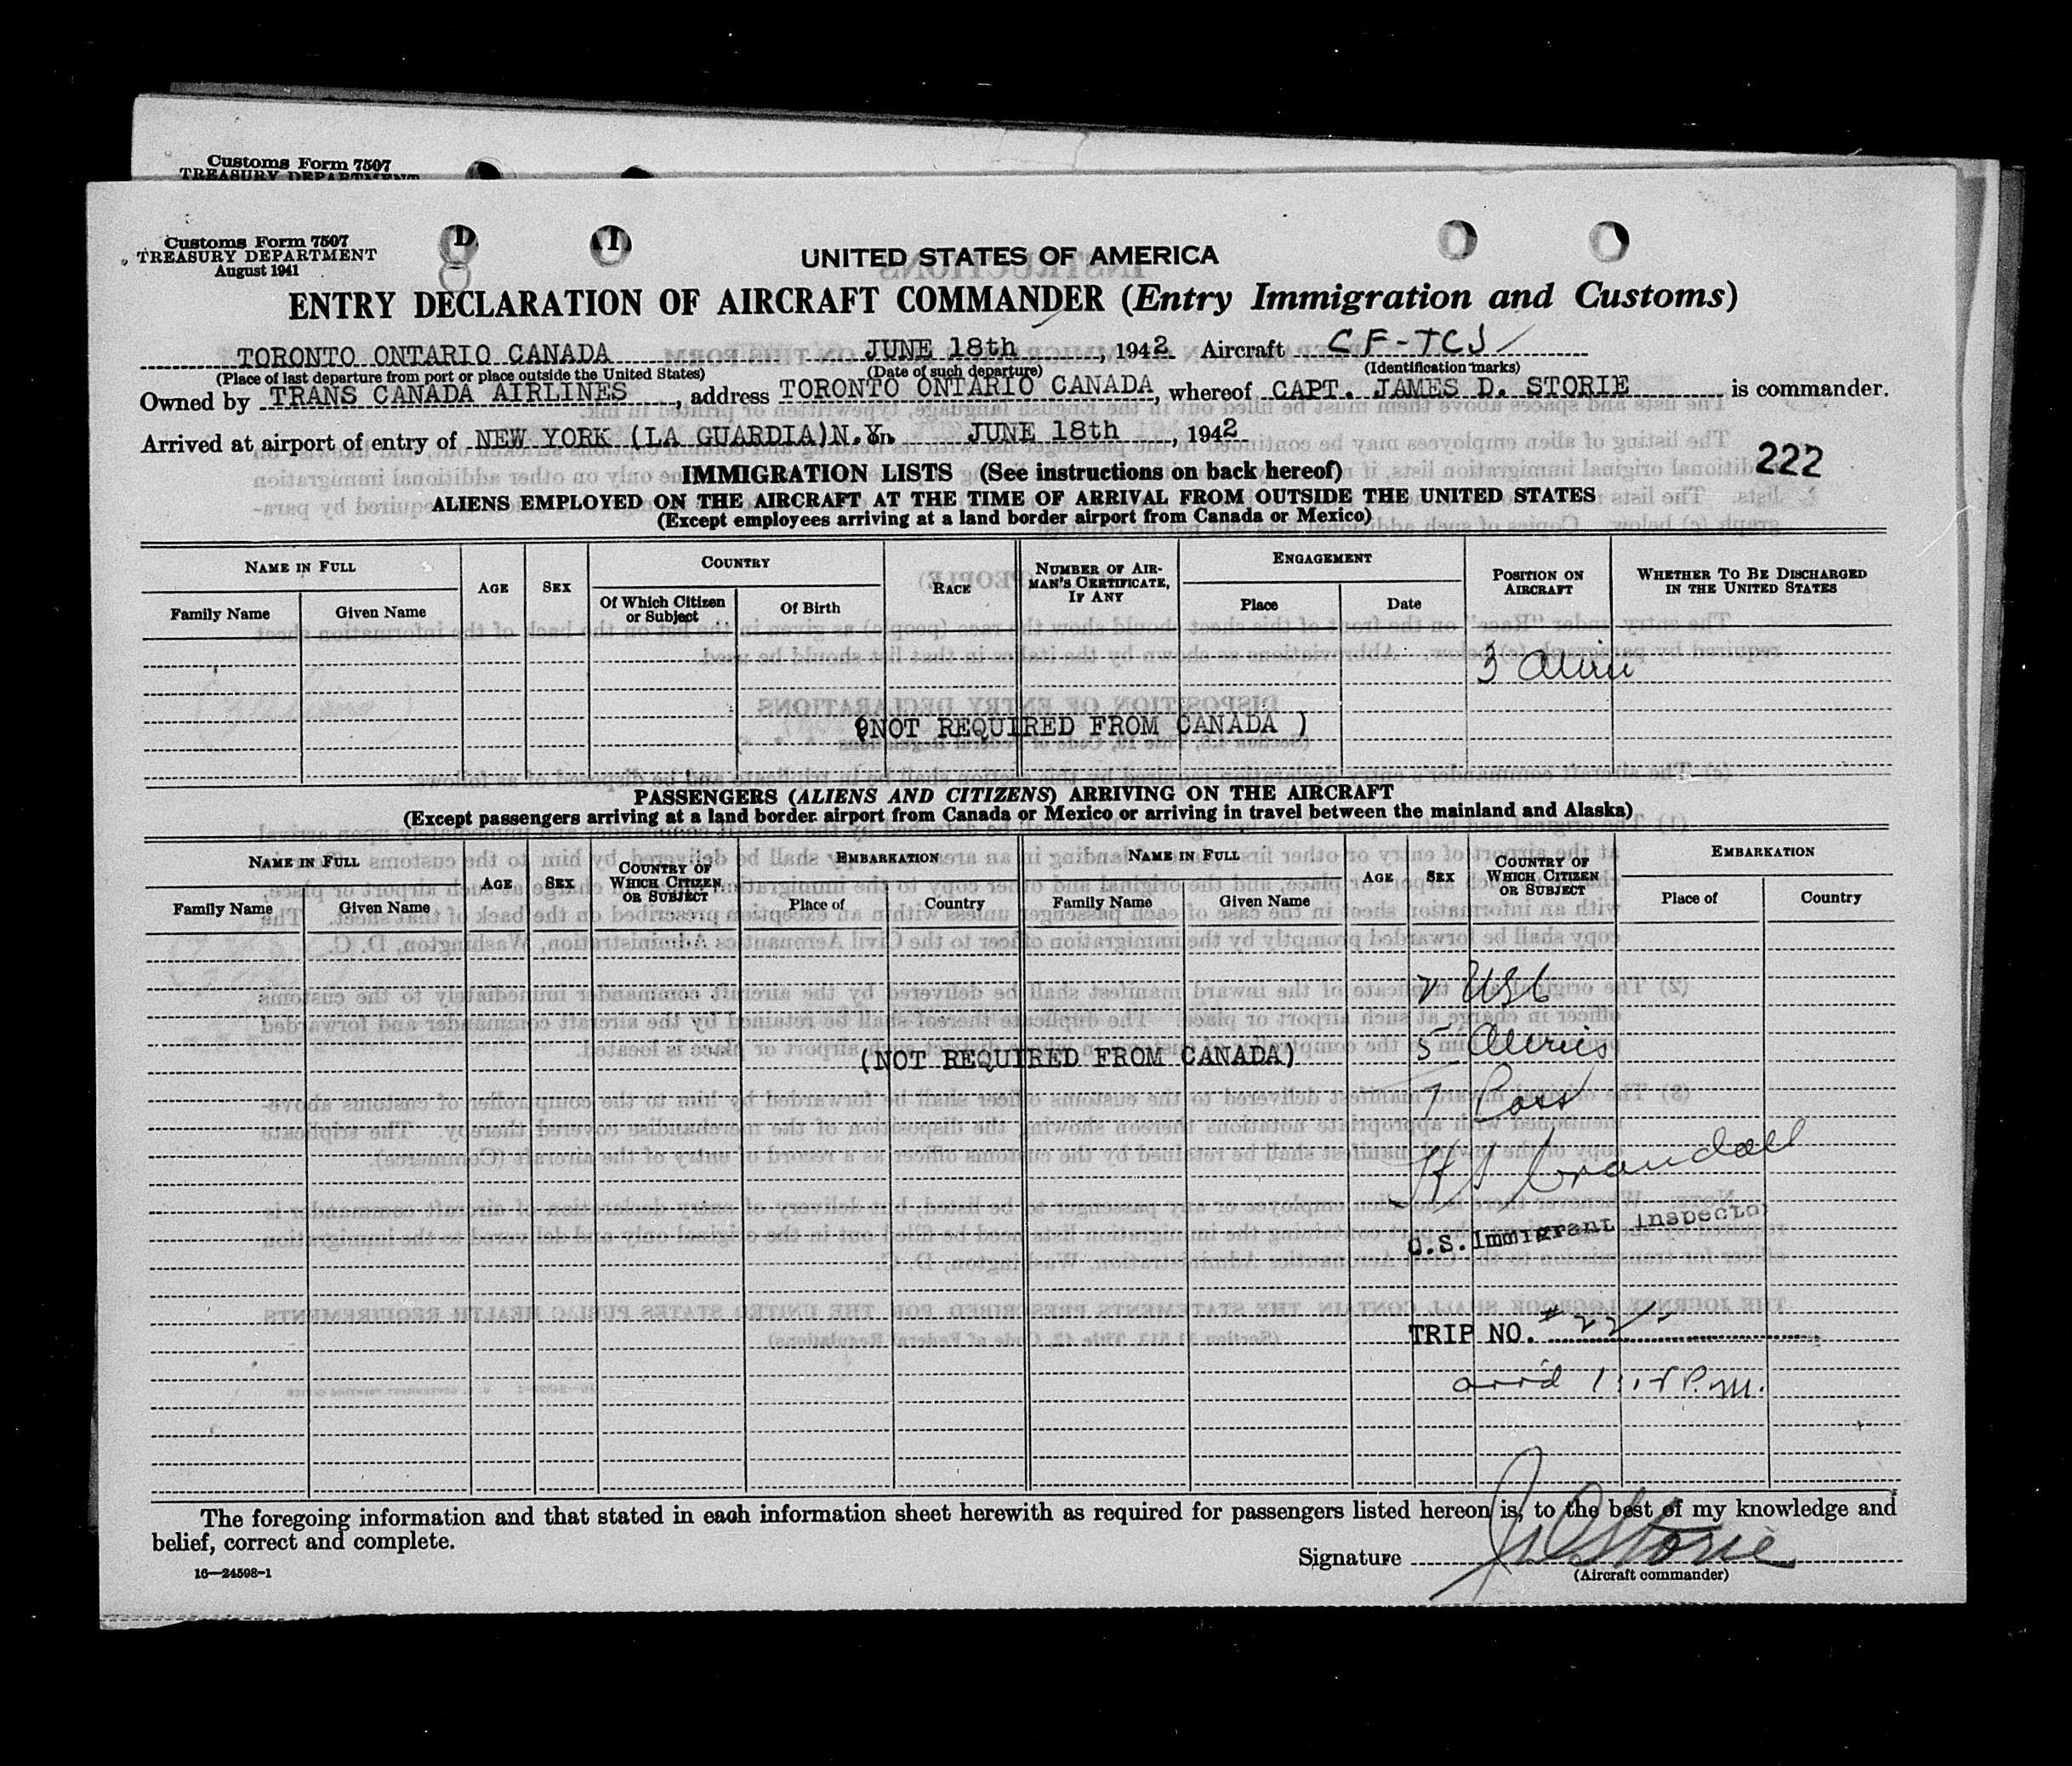 Customs Form 7507
TREASURY DEPARTMENT
Customs Form 7507
TREASURY DEPARTMENT
August 1941
D I
UNITED STATES OF AMERICA
ENTRY DECLARATION OF AIRCRAFT COMMANDER (Entry Immigration and Customs)
TORONTO ONTARIO CANADA JUNE 18th, 1942 Aircraft CF-TCJ
(Place of last departure from port or place outside the United States) (Date of such departure) (Identification marks)
Owned by TRANS CANADA AIRLINES, address TORONTO ONTARIO CANADA, whereof CAPT. JAMES D. STORIE is commander.
Arrived at airport of entry of NEW YORK (LA GUARDIA)N.Y. on JUNE 18th, 1942
222
IMMIGRATION LISTS (See instructions on back hereof)
ALIENS EMPLOYED ON THE AIRCRAFT AT THE TIME OF ARRIVAL FROM OUTSIDE THE UNITED STATES
(Except employees arriving at a land border airport from Canada or Mexico)
NAME IN FULL AGE SEX COUNTRY RACE NUMBER OF AIRMAN'S CERTIFICATE, IF ANY ENGAGEMENT POSITION ON AIRCRAFT WHETHER TO BE DISCHARGED IN THE UNITED STATES
Family Name Given Name Of Which Citizen or Subject Of Birth Place Date
3 alien
(NOT REQUIRED FROM CANADA )
PASSENGERS (ALIENS AND CITIZENS) ARRIVING ON THE AIRCRAFT
(Except passengers arriving at a land border airport from Canada or Mexico or arriving in travel between the mainland and Alaska)
NAME IN FULL AGE SEX COUNTRY OF WHICH CITIZEN OR SUBJECT EMBARKATION NAME IN FULL AGE SEX COUNTRY OF WHICH CITIZEN OR SUBJECT EMBARKATION
Family Name Given Name Place of Country Family Name Given Name Place of Country
2 USC
5 Aliens
(NOT REQUIRED FROM CANADA)
7 Pass
Crandall
U.S. Immigrant Inspector
TRIP NO. #
arr'd P.M.
The foregoing information and that stated in each information sheet herewith as required for passengers listed hereon is, to the best of my knowledge and
belief, correct and complete.
Signature J D Storie
(Aircraft commander)
16—24598-1